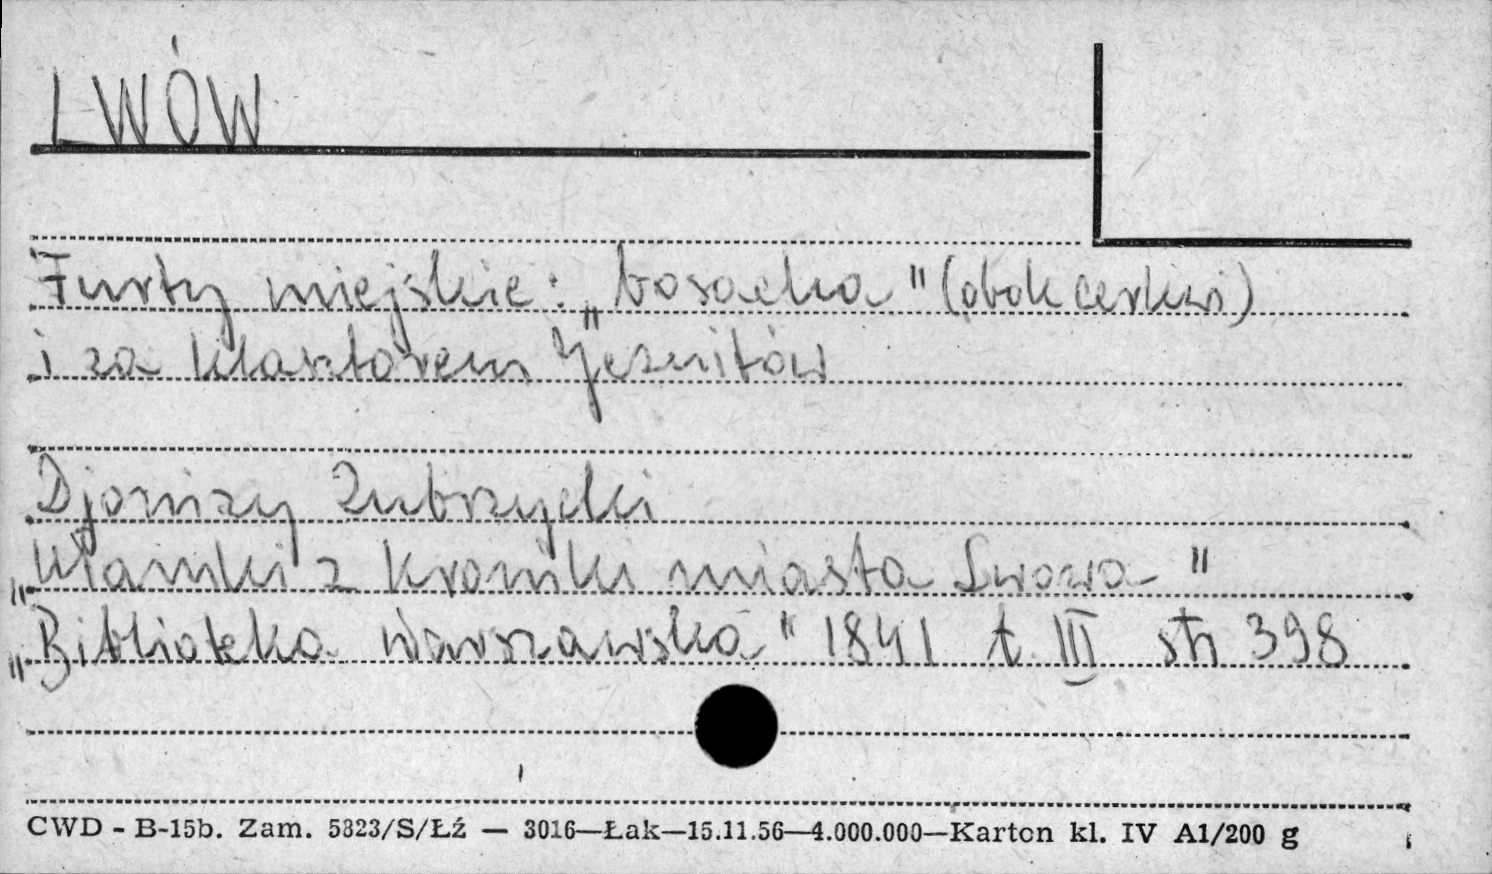 LWÓW
Furty miejskie: „bosacka" (obok cerkwi)
i za klasztorem Jezuitów
Djonizy Zubrzycki
„Ułamki z kroniki miasta Lwowa"
„Biblioteka Warszawska" 1841 t. III str 398
CWD - B-15b. Zam. 5323/S/Łź — 3016—Łak—15.11.56—4.000.000—Karton kl. IV A1/200 g